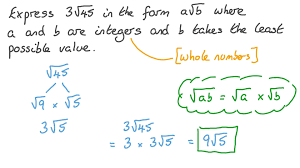 Express 3√45 in the form a√b where
a and b are integers and b takes the least
possible value.
[whole numbers]
√45
√9 × √5
3√5
√ab = √a × √b
3√45
= 3 × 3√5 = 9√5